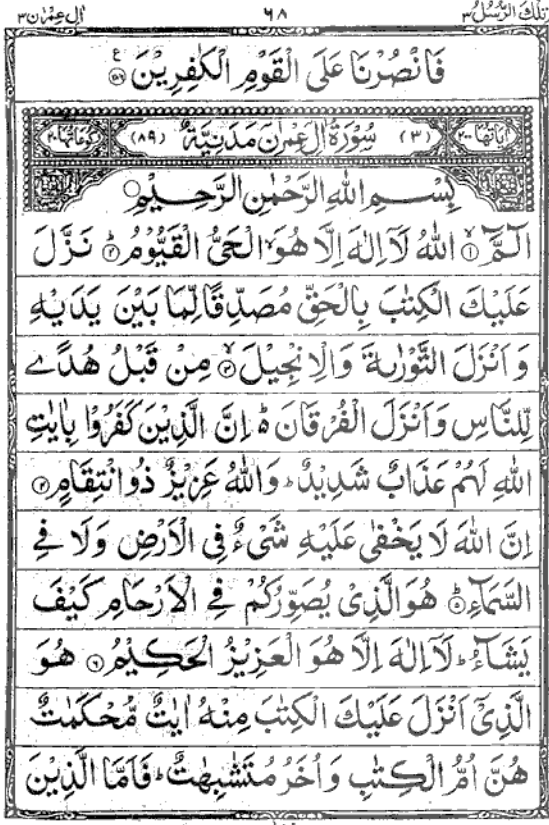 تِلْكَ الرُّسُلُ ٣ ٦٨ اٰلِ عِمْرٰن ٣
فَانْصُرْنَا عَلَى الْقَوْمِ الْكٰفِرِيْنَ ۝٢٨٦ ع
اٰيَاتُهَا ٢٠٠ (٣) سُوْرَةُ اٰلِ عِمْرٰنَ مَدَنِيَّةٌ (٨٩) رُكُوْعَاتُهَا ٢٠
بِسْمِ اللّٰهِ الرَّحْمٰنِ الرَّحِيْمِ
الٓمّٓ ۝١ۙ اللّٰهُ لَاۤ اِلٰهَ اِلَّا هُوَۙ الْحَىُّ الْقَيُّوْمُ ۝٢ؕ نَزَّلَ
عَلَيْكَ الْكِتٰبَ بِالْحَقِّ مُصَدِّقًا لِّمَا بَيْنَ يَدَيْهِ
وَاَنْزَلَ التَّوْرٰىةَ وَالْاِنْجِيْلَ ۝٣ۙ مِنْ قَبْلُ هُدًى
لِّلنَّاسِ وَاَنْزَلَ الْفُرْقَانَ ؕ اِنَّ الَّذِيْنَ كَفَرُوْا بِاٰيٰتِ
اللّٰهِ لَهُمْ عَذَابٌ شَدِيْدٌ ؕ وَاللّٰهُ عَزِيْزٌ ذُو انْتِقَامٍ ۝٤
اِنَّ اللّٰهَ لَا يَخْفٰى عَلَيْهِ شَىْءٌ فِى الْاَرْضِ وَلَا فِى
السَّمَآءِ ۝٥ؕ هُوَ الَّذِىْ يُصَوِّرُكُمْ فِى الْاَرْحَامِ كَيْفَ
يَشَآءُ ؕ لَاۤ اِلٰهَ اِلَّا هُوَ الْعَزِيْزُ الْحَكِيْمُ ۝٦ هُوَ
الَّذِىْۤ اَنْزَلَ عَلَيْكَ الْكِتٰبَ مِنْهُ اٰيٰتٌ مُّحْكَمٰتٌ
هُنَّ اُمُّ الْكِتٰبِ وَاُخَرُ مُتَشٰبِهٰتٌ ؕ فَاَمَّا الَّذِيْنَ